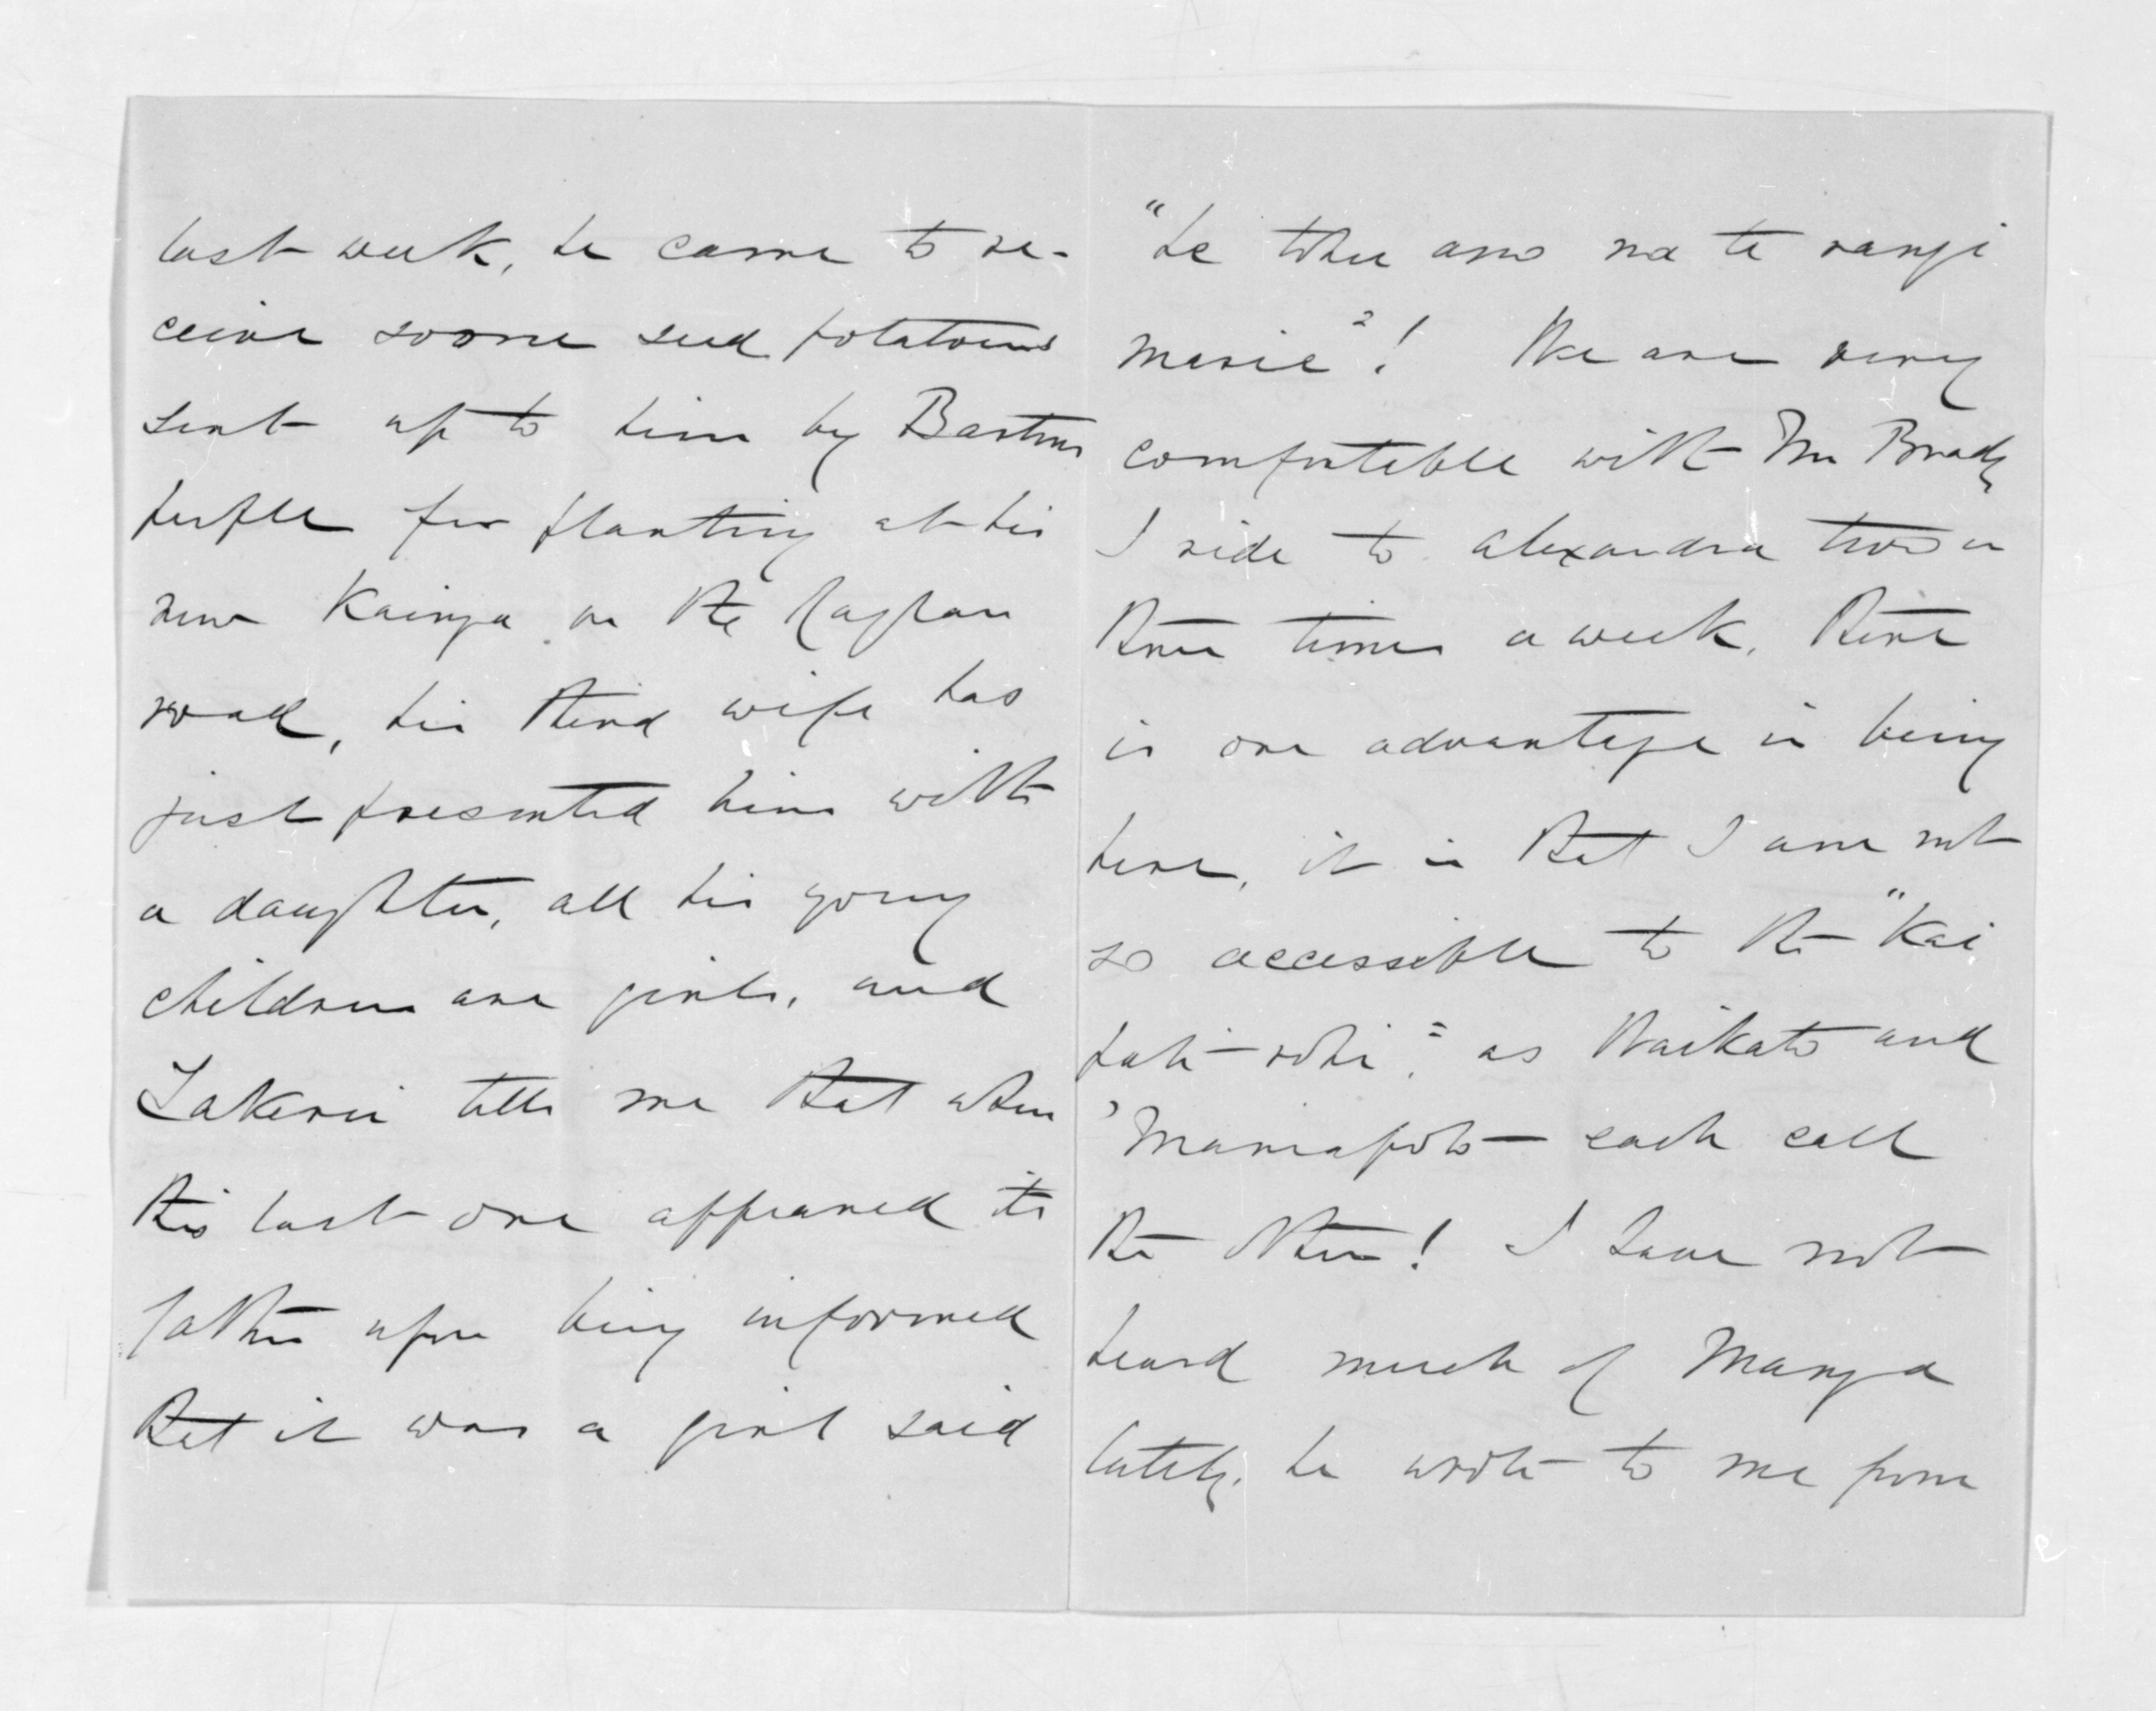 last week, he came to re-
ceive some seed potatoes
sent up to him by Bartons
people for planting at his
new Kainga on the Raglan
road, his third wife has
just presented him with
a daughter, all his young
children are girls, and
Takerei tells me that when
this last one appeared its
father upon being informed
that it was a girl said
"he tohu ano na te rangi
marie"! We are very
comfortable with Mr Brady
I ride to Alexandra two or
three times a week. There
is one advantage in being
here, it is that I am not
so accessible to the "Kai
tah-rohi", as Waikato and
'Maniapoto — each call
the other! I have not
heard much of Manga
lately. he wrote to me from